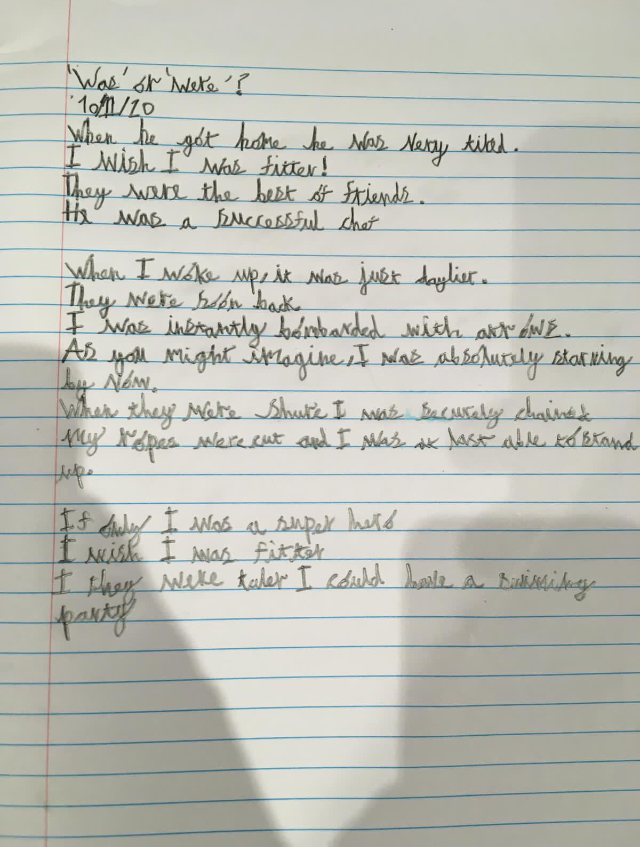 'Was' or 'Were'?
10/11/20
When he got home he was very tired.
I wish I was fitter!
They were the best of friends.
He was a successful chef
When I woke up, it was just daylier.
They were soon back.
I was instantly bombarded with arrows.
As you might imagine, I was absolutely starving
by now.
When they were shure I was securely chained
My ropes were cut and I was at last able to stand
up.
If only I was a super hero
I wish I was fitter
I they were taler I could have a swiming
party